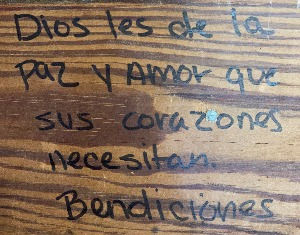 Dios les de la
paz y Amor que
sus corazones
necesitan.
Bendiciones